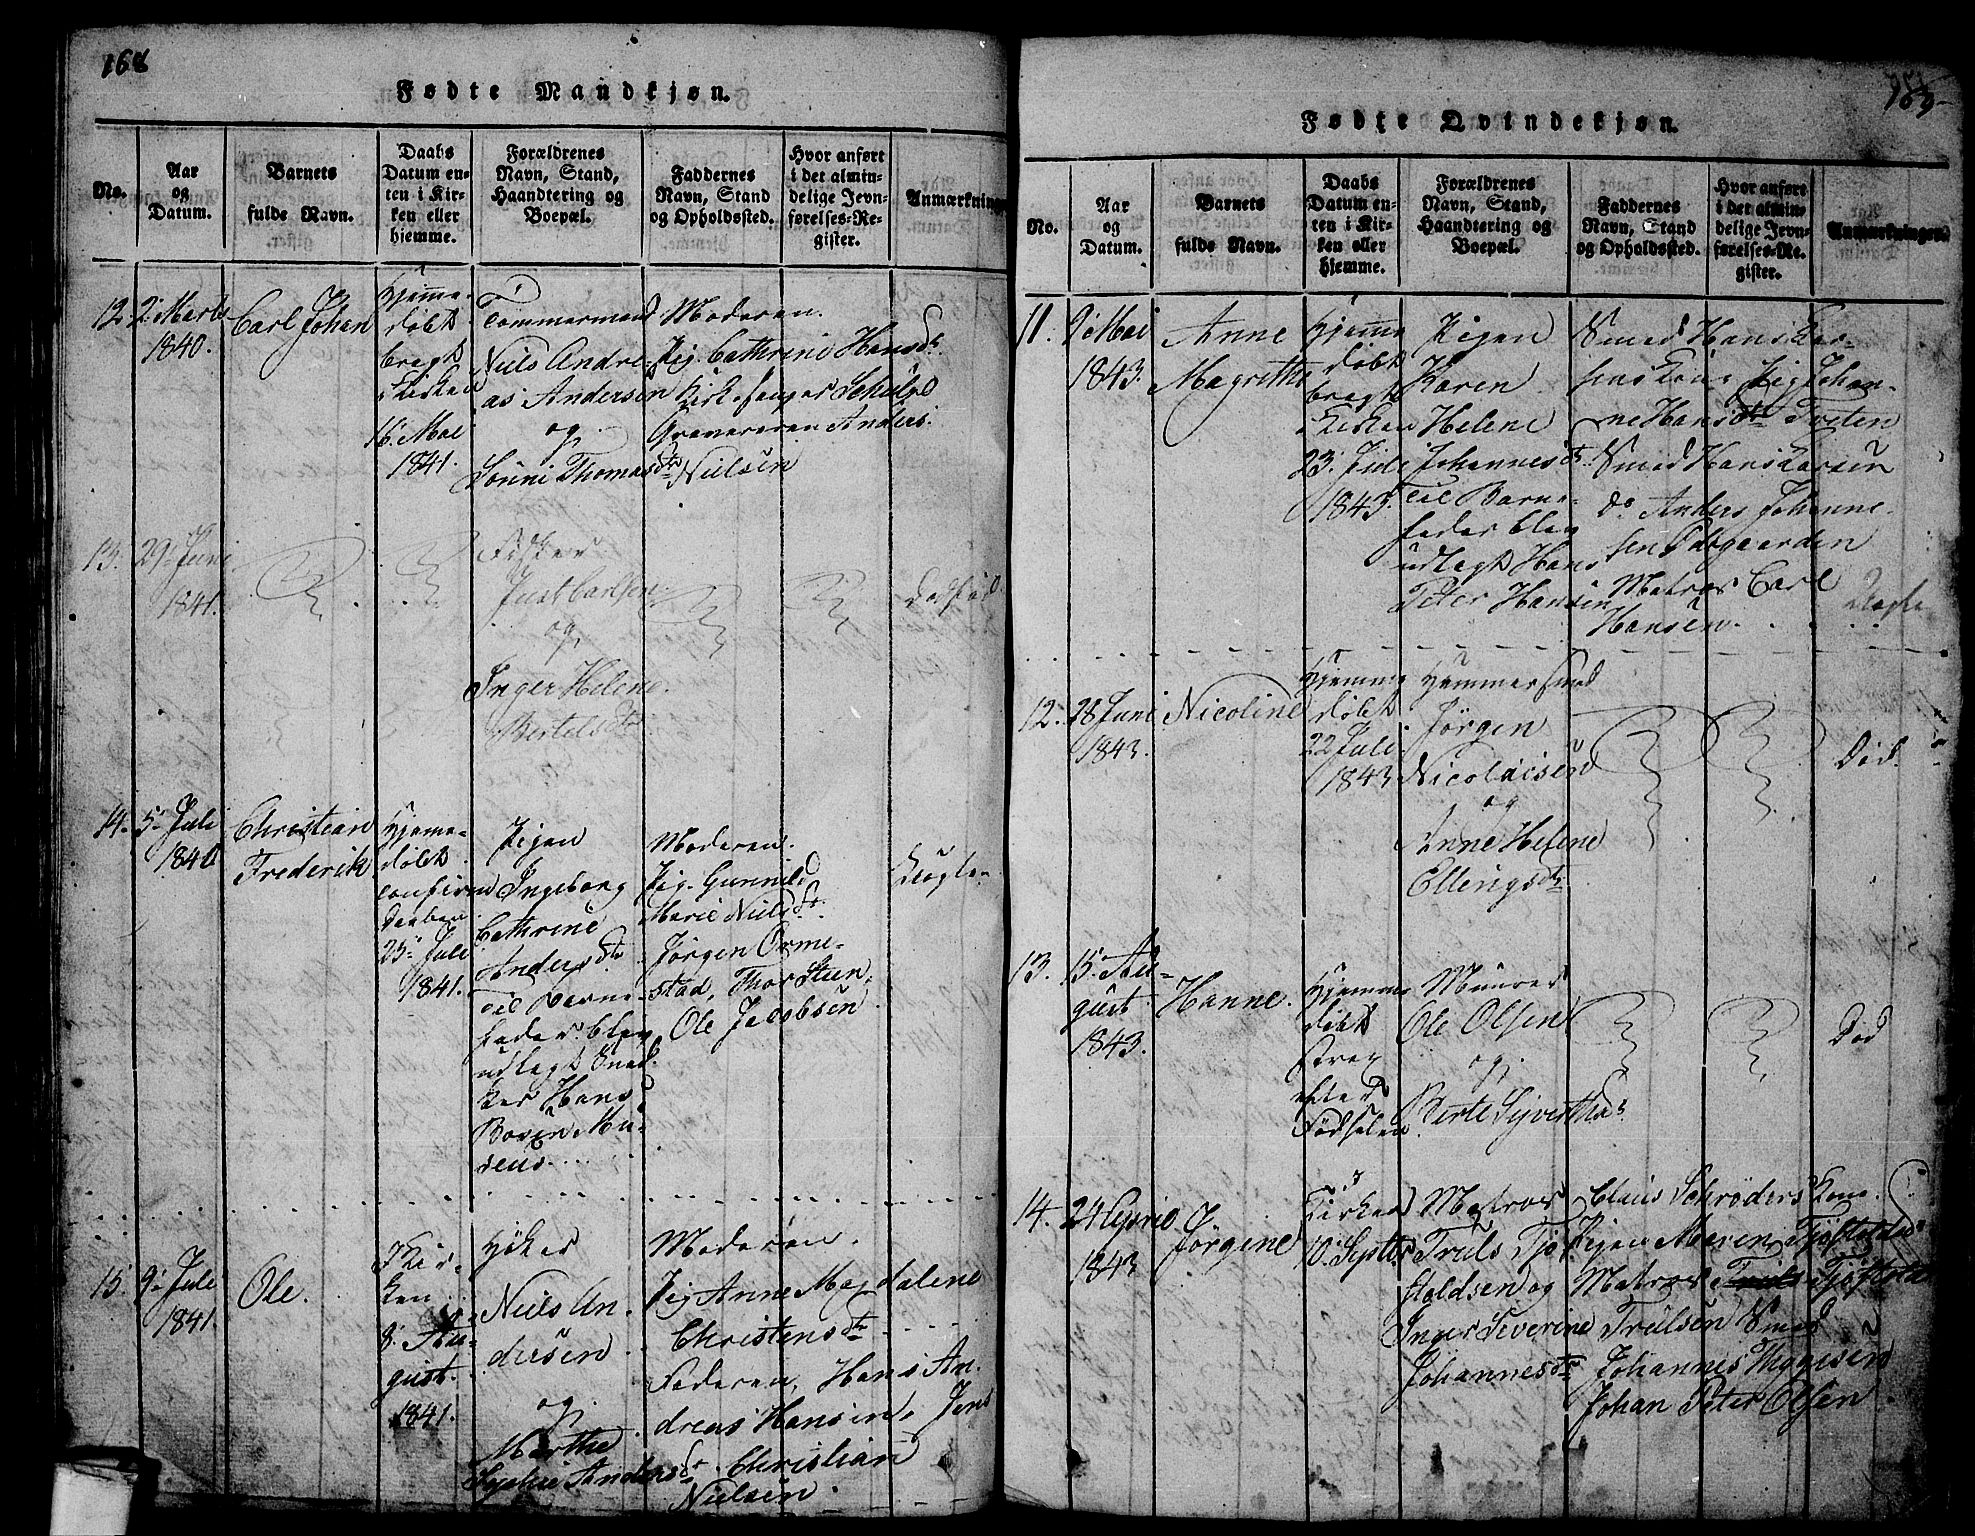 168
Fødte Mandkjøn.
No.
Aar
og
Datum.
Barnets
fulde Navn.
Daabs
Datum en-
ten i Kir-
ken eller
hjemme.
Forældrenes
Navn, Stand,
Haandtering og
Boepæl.
Faddernes
Navn, Stand
og Opholdssted.
Hvor anført
i det almin-
delige Jevn-
førelses-Re-
gister.
Anmærkning
12.
2 Marts
1840.
Carl Johan
Hjemme-
døbt
bragt
i Kirken
16 Mai
1841.
Tømmermand
Niels Andre-
as Andersen
og
Thomasdtr
Moderen.
Pig. Cathrine Hansdr.
Kirkesanger Schulze
Graveren Anders
Nielsen
13.
29 Juni
1841.
Fisker
Just Carlsen
og
Inger Helene
Bertelsdtr
Dødfød
14.
5 Juli
1840
Christian
Frederik
Hjemme-
døbt
confirm
Daaben
25 Juli
1841.
Pigen
Ingeborg
Cathrine
Andersdtr
Til Barne-
fader blev
udlagt Sned-
ker Hans
Boysen Mu-
seus
Moderen.
Pig. Gunnild
Marie Nielsdtr.
Jørgen Orme-
stad, Thor Steen,
Ole Jacobsen
Uægte
15.
9 Juli
1841.
Ole.
I Kir-
ken
8 Au-
gust.
1841.
Høker
Niels An-
dersen
og
Marthe
Sophie Andersdtr
Moderen.
Pig Anne Magdalene
Christensdtr
Faderen, Hans An-
dreas Hansen, Jens
Christian
Nielsen
Fødte Qvindekjøn.
No.
Aar
og
Datum.
Barnets
fulde Navn.
Daabs
Datum en-
ten i Kir-
ken eller
hjemme.
Forældrenes
Navn, Stand,
Haandtering og
Boepæl.
Faddernes
Navn, Stand
og Opholdssted.
Hvor anført
i det almin-
delige Jevn-
førelses-Re-
gister.
Anmærkninger.
11.
9 Mai
1843.
Anne
Magrethe
Hjemme
døbt
bragt i
Kirken
23 Juli
1843.
Pigen
Karen
Helene
Johannesdtr
Til Barne-
fader blev
udlagt Hans
Peter Hansen
Smed Hans Lar-
sens Kone, Pig Johan-
ne Hansdtr Tveten
Smed Hans Larsen
do Anders Johanne-
sen Odegaarden
Matros Carl
Hansen.
Uægte
12.
28 Juni
1843.
Nicoline
Hjemme
døbt
22 Juli
1843
Hammersmed
Jørgen
Nicolaisen
og
Anne Helene
Ellingsdtr
Død.
13.
15 Au-
gust
1843.
Hanne.
Hjemme
døbt
strax
efter
Fødselen
Murer
Ole Olsen
og
Berte Syvertsdr
Død
14.
24 April
1843
Jørgine
I Kirken
10 Septbr
Matros
Truls Tjø-
stoldsen og
Inger Severine
Johannesdtr
Claus Schrøders Kone.
Pigen Maren Tjøstolds
Matros Truls Tjøstold
Trulsen Smed
Johannes Viggesen
Johan Peter Olsen